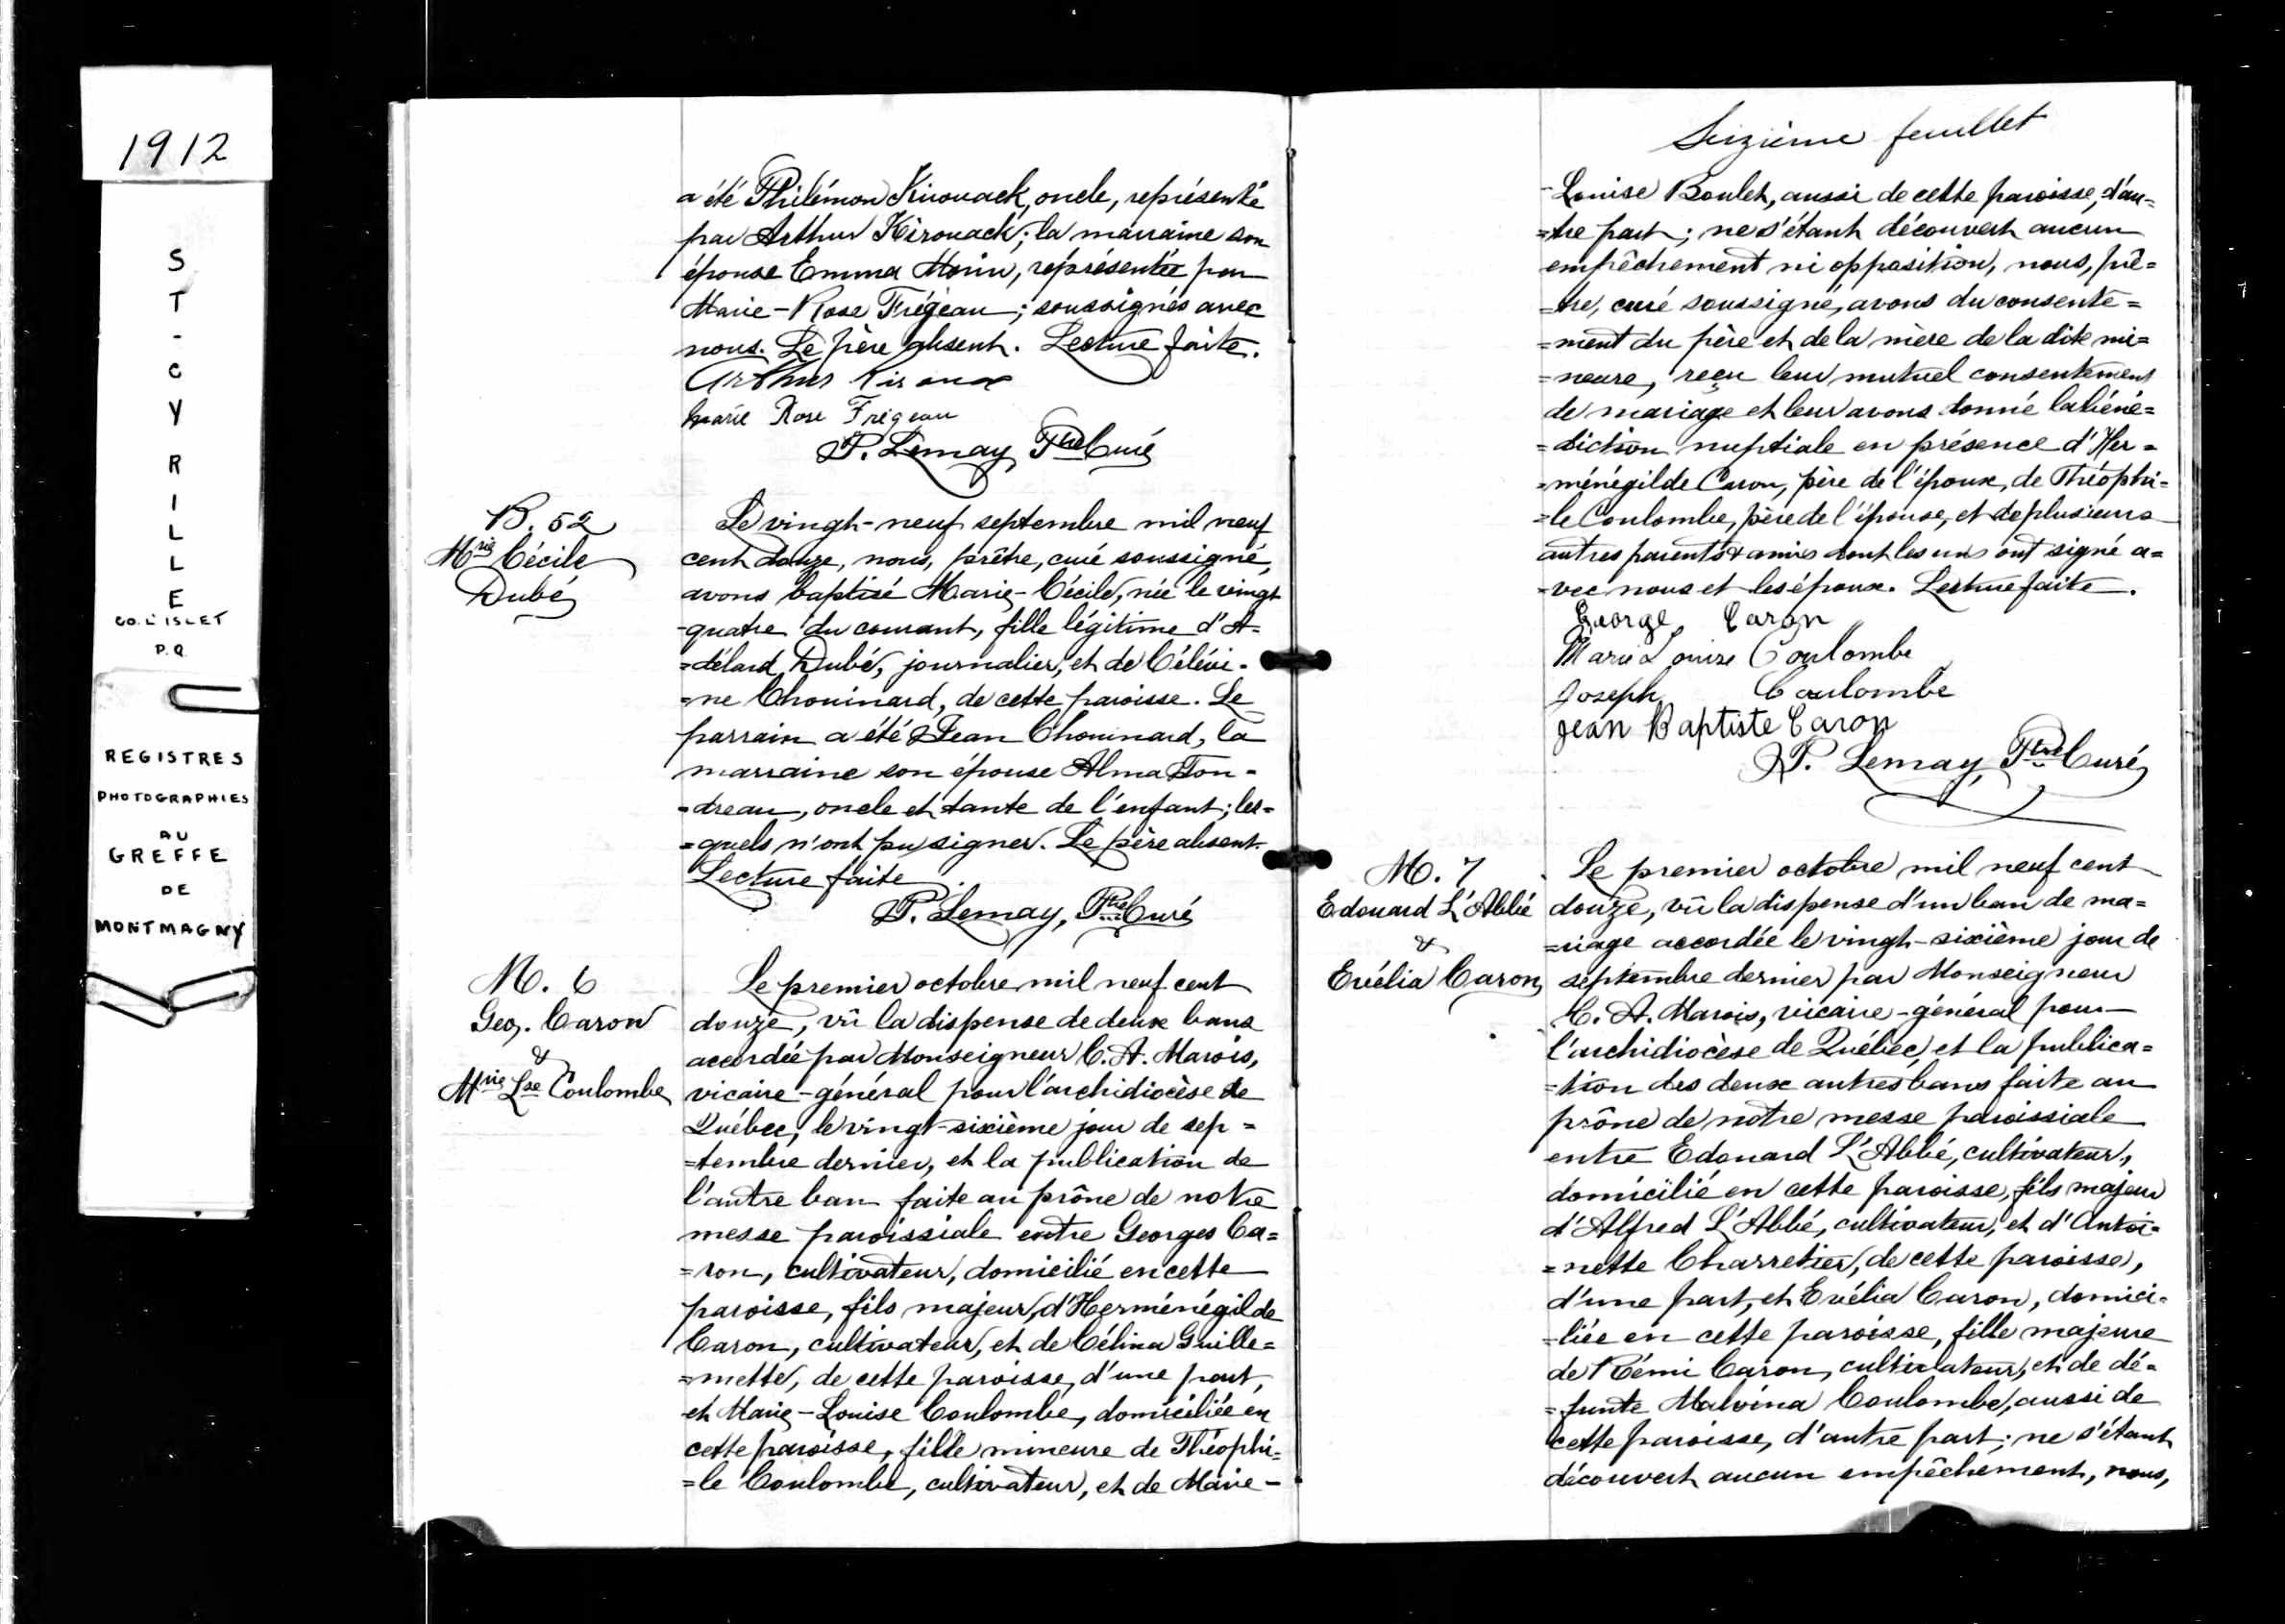 1912
ST-CYRILLE
CO. L'ISLET
P.Q.
REGISTRES
PHOTOGRAPHIES
AU
GREFFE
DE
MONTMAGNY
a été Philémon Kirouack, oncle, représenté
par Arthur Kirouack; la marraine son
épouse Emma Morin, représentée par
Marie-Rose Frégeau; soussignés avec
nous. Le père absent. Lecture faite.
Arthur Kirouac
Marie Rose Frégeau
P. Lemay, Ptre Curé
B. 52
Mrie Cécile
Dubé
Le vingt-neuf septembre mil neuf
cent douze, nous, prêtre, curé soussigné,
avons baptisé Marie-Cécile, née le vingt
-quatre du courant, fille légitime d'A=
=délard Dubé, journalier, et de Célévi-
=ne Chouinard, de cette paroisse. Le
parrain a été Jean Chouinard, la
marraine son épouse Alma Ton-
-dreau, oncle et tante de l'enfant; les=
=quels n'ont pu signer. Le père absent.
Lecture faite.
P. Lemay, Ptre Curé
M. 6
Geo. Caron
&
Mrie Lse Coulombe
Le premier octobre mil neuf cent
douze, vû la dispense de deux bans
accordée par Monseigneur C. A. Marois,
vicaire-général pour l'archidiocèse de
Québec, le vingt-sixième jour de sep=
=tembre dernier, et la publication de
l'autre ban faite au prône de notre
messe paroissiale entre Georges Ca=
=ron, cultivateur, domicilié en cette
paroisse, fils majeur d'Herménégilde
Caron, cultivateur, et de Célina Guille=
=mette, de cette paroisse, d'une part,
et Marie-Louise Coulombe, domiciliée en
cette paroisse, fille mineure de Théophi=
=le Coulombe, cultivateur, et de Marie-
Seizième feuillet
-Louise Boulet, aussi de cette paroisse, d'au=
=tre part; ne s'étant découvert aucun
empêchement ni opposition, nous, prê=
=tre, curé soussigné, avons du consente=
=ment du père et de la mère de la dite mi=
=neure, reçu leur mutuel consentement
de mariage et leur avons donné la béné=
=diction nuptiale en présence d'Her=
=ménégilde Caron, père de l'époux, de Théophi=
=le Coulombe, père de l'épouse, et de plusieurs
autres parents & amis dont les uns ont signé a=
-vec nous et les époux. Lecture faite.
George Caron
Marie Louise Coulombe
Joseph Coulombe
Jean Baptiste Caron
P. Lemay, Ptre Curé
M. 7
Edouard L'Abbé
&
Evélia Caron
Le premier octobre mil neuf cent
douze, vû la dispense d'un ban de ma=
=riage accordée le vingt-sixième jour de
septembre dernier par Monseigneur
C. A. Marois, vicaire-général pour
l'archidiocèse de Québec, et la publica=
=tion des deux autres bans faite au
prône de notre messe paroissiale
entre Edouard L'Abbé, cultivateur,
domicilié en cette paroisse, fils majeur
d'Alfred L'Abbé, cultivateur, et d'Antoi=
=nette Charretier, de cette paroisse,
d'une part, et Evélia Caron, domici-
-liée en cette paroisse, fille majeure
de Rémi Caron, cultivateur, et de dé=
=funte Malvina Coulombe, aussi de
cette paroisse, d'autre part; ne s'étant
découvert aucun empêchement, nous,